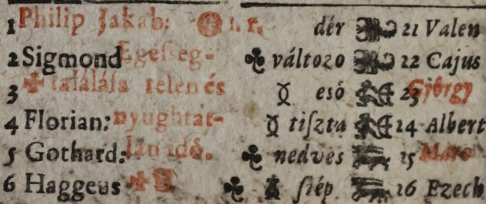 1 Philip Jakab: 1. r. dér 21 Valen
2 Sigmond Egésseg- változo 22 Cajus
3 találása telen és esó 23 György
4 Florian: nyughtat- tiszta 24 Albert
5 Gothard: lan idő. nedves 25 Marc
6 Haggeus szép 26 Ezech